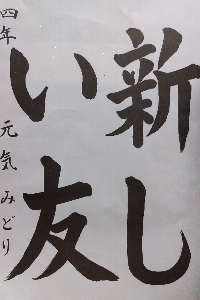 新し
い友
四年 元気みどり